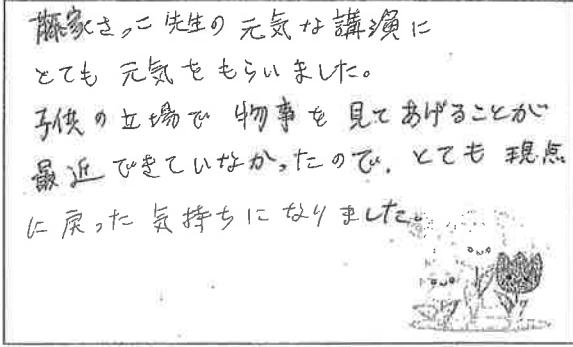 藤家さっこ先生の元気な講演に
とても元気をもらいました。
子供の立場で物事を見てあげることが
最近できていなかったので、とても現点
に戻った気持ちになりました。